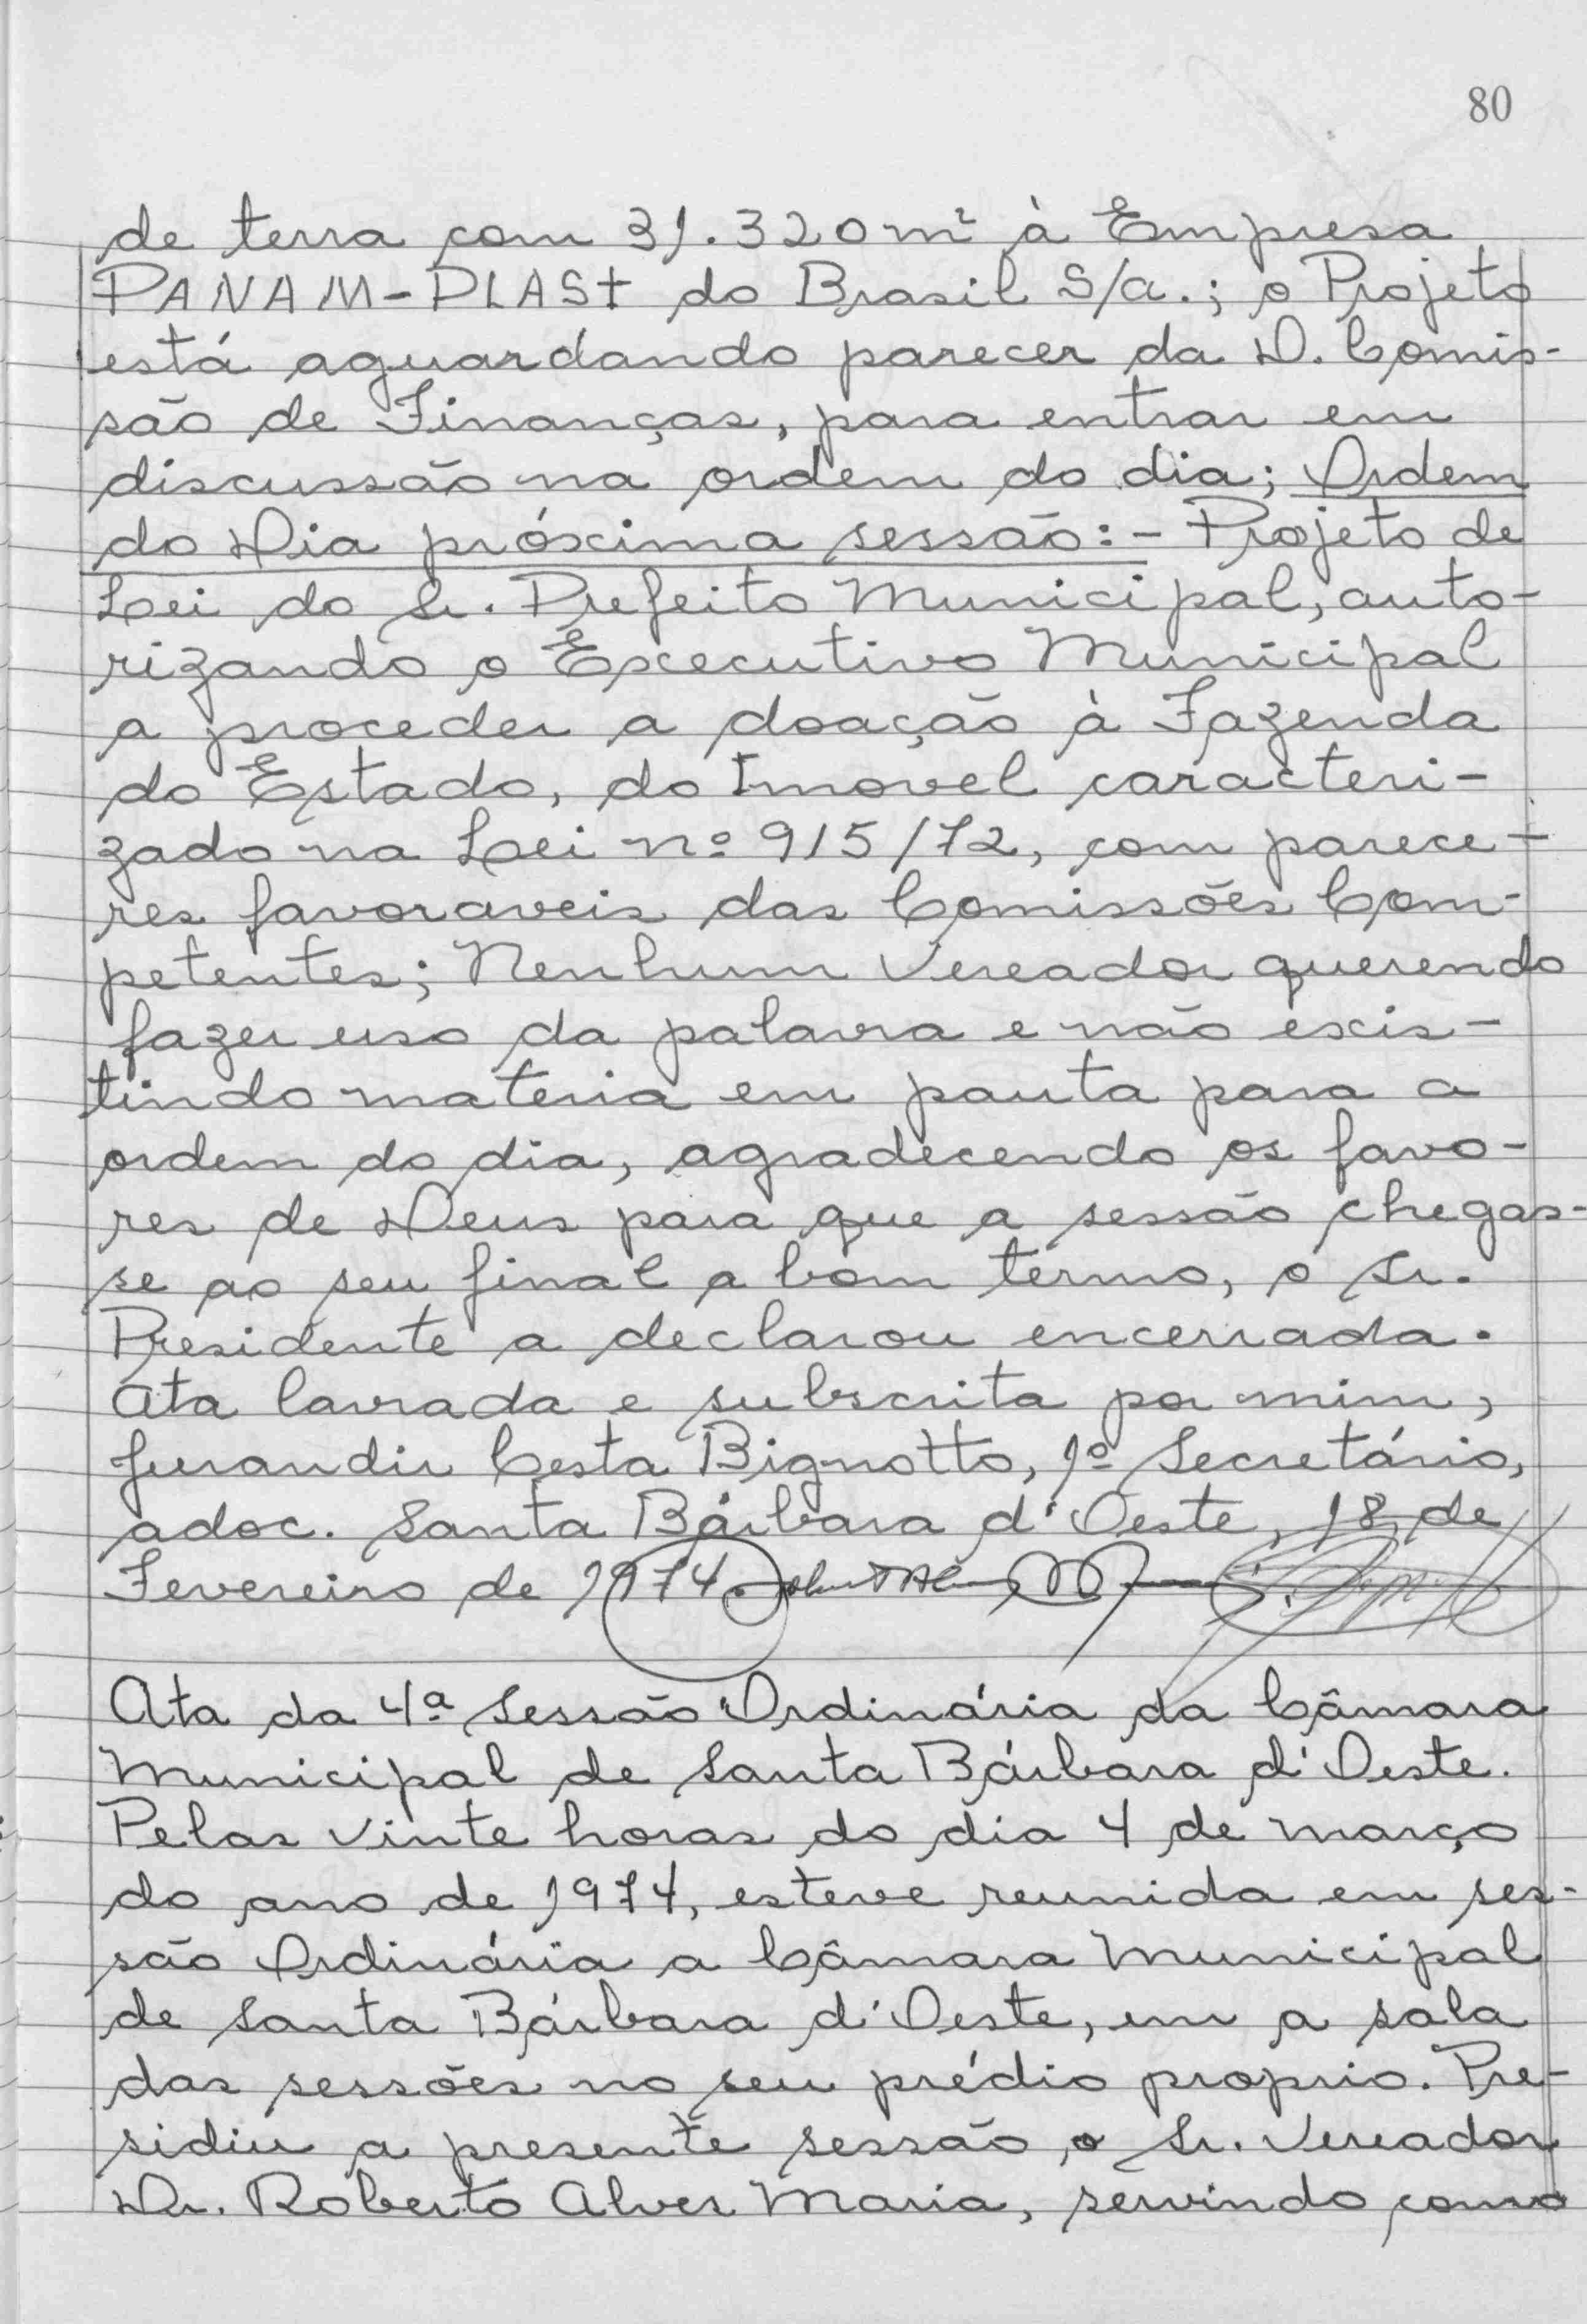 80
de terra com 31.320m² à Empresa
PANAM-PLASt do Brasil S/a.; o Projeto
está aguardando parecer da D. Comis-
são de Finanças, para entrar em
discussão na ordem do dia; Ordem
do Dia próxima sessão:- Projeto de
Lei do Sr. Prefeito Municipal, auto-
rizando o Executivo Municipal
a proceder a doação à Fazenda
do Estado, do Imovel caracteri-
zado na Lei nº 915/72, com parece-
res favoraveis das Comissões Com-
petentes; Nenhum Vereador querendo
fazer uso da palavra e não exis-
tindo materia em pauta para a
ordem do dia, agradecendo os favo-
res de Deus para que a sessão chegas-
se ao seu final a bom termo, o Sr.
Presidente a declarou encerrada.
Ata lavrada e subscrita por mim,
Jurandir Cesta Bignotto, 1º Secretário,
adoc. Santa Bárbara d'Oeste, 18 de
Fevereiro de 1974.
Ata da 4ª Sessão Ordinária da Câmara
Municipal de Santa Bárbara d'Oeste.
Pelas vinte horas do dia 4 de março
do ano de 1974, esteve reunida em ses-
são Ordinária a Câmara Municipal
de Santa Bárbara d'Oeste, em a sala
das sessões no seu prédio proprio. Pre-
sidiu a presente sessão o Sr. Vereador
Dr. Roberto Alves Maria, servindo como